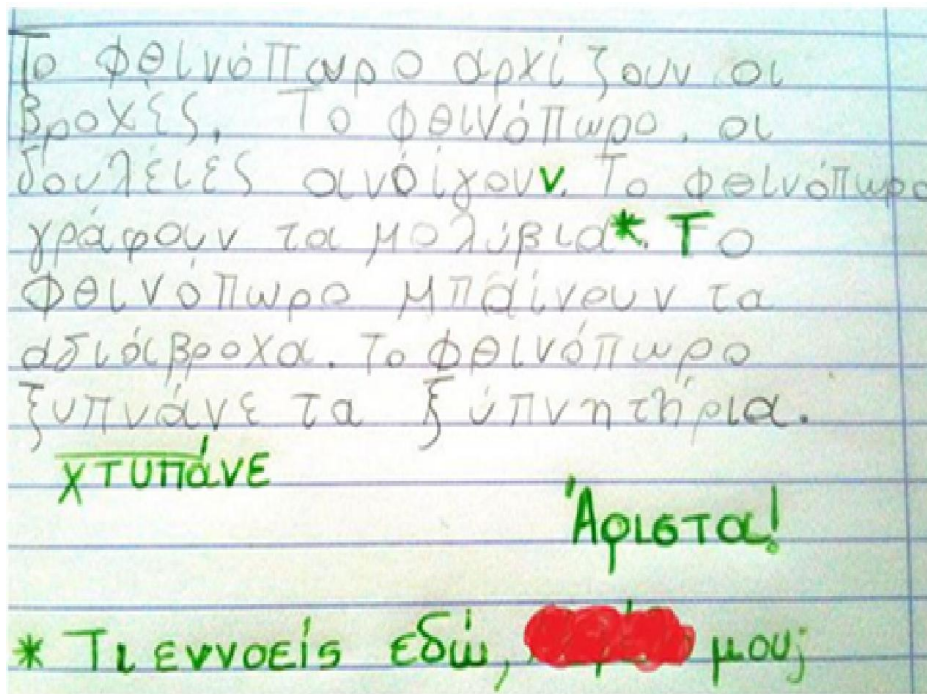 Το φθινόπωρο αρχίζουν οι
βροχές. Το φθινόπωρο. οι
δουλέιές ανοίγουν. Το φθινόπωρο
γράφουν τα μολύβια*. Το
φθινόπωρο μπαίνουν τα
αδιάβροχα. Το φθινόπωρο
ξυπνάνε τα ξύπνητήρια.
χτυπάνε
Άριστα!
* Τι εννοείς εδώ, μου;